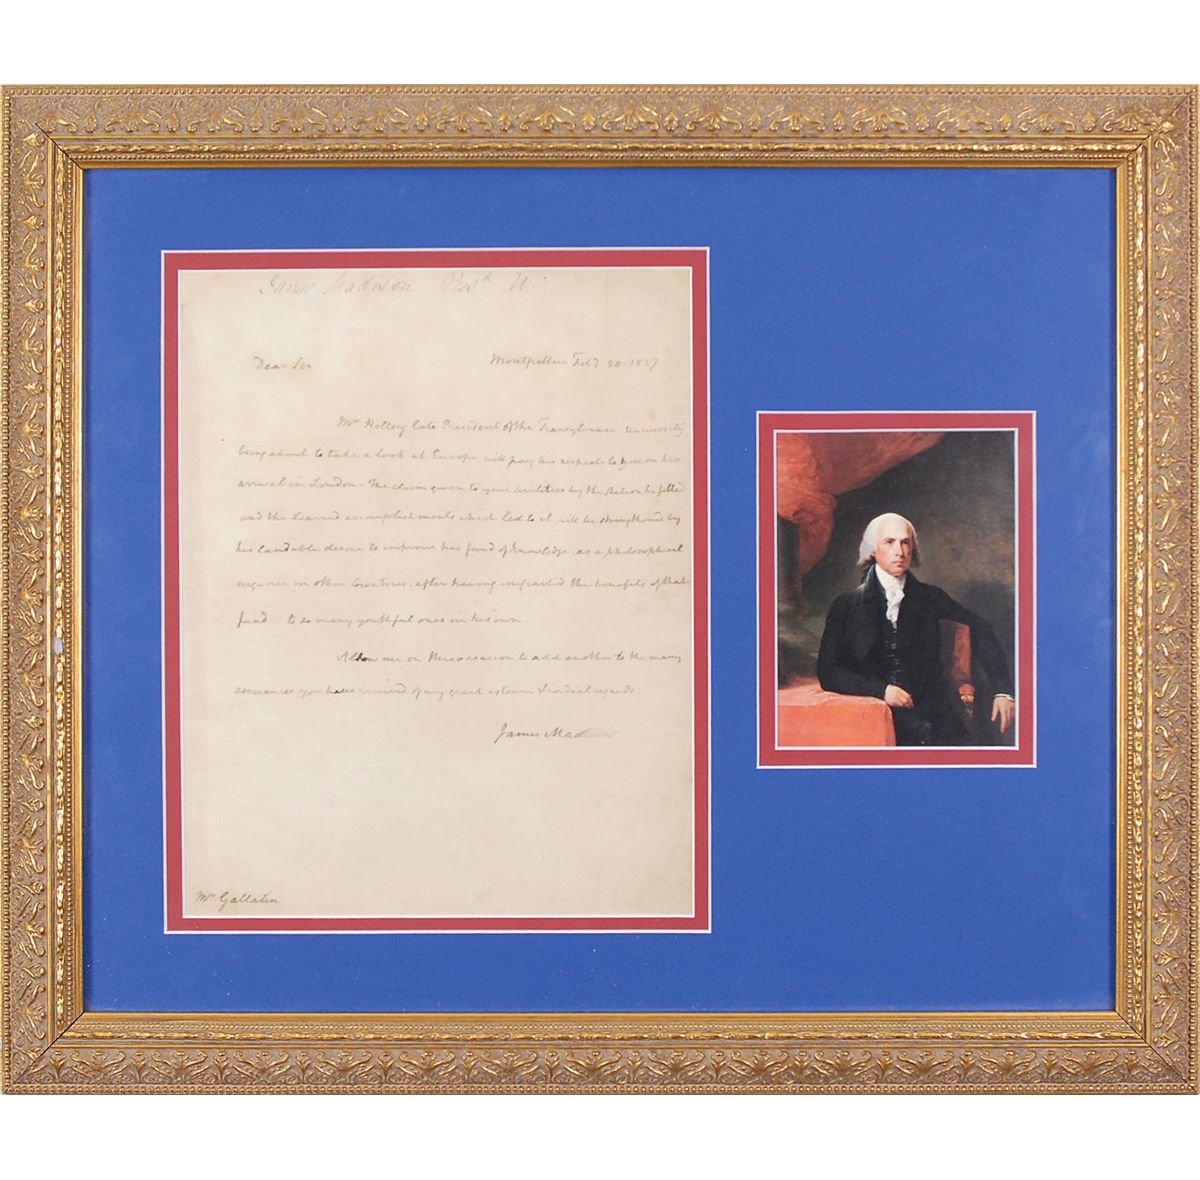 James Madison Presd U.
Montpellier Feby. 20. 1827
Dear Sir
Mr. Holley late President of the Transylvania University,
being about to take a look at Europe, will pay his respects to you on his
arrival in London. The claim given to your civilities by the Station he filled
and the Learned accomplishments which led to it, will be strengthened by
his laudable desire to improve his fund of knowledge, as a philosophical
enquirer in other Countries, after having imparted the benefits of that
fund to so many youthful ones in his own.
Allow me on this occasion to add another to the many
assurances you have received of my great esteem & cordial regards.
James Madison
Mr. Gallatin